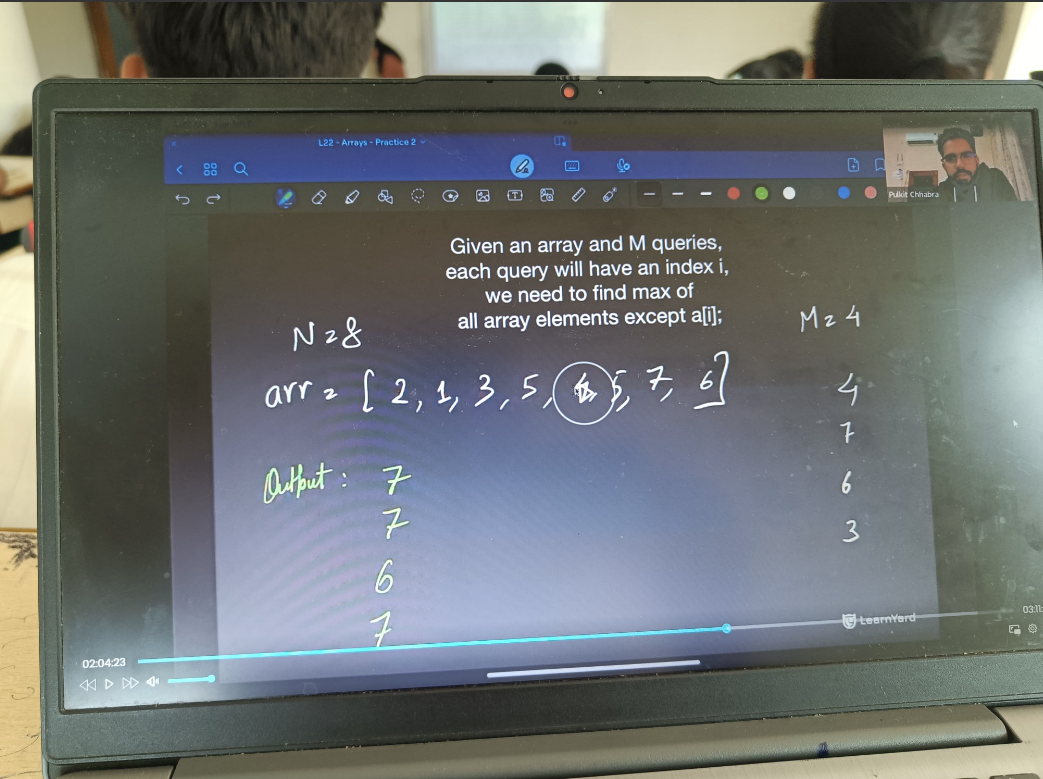 L22 - Arrays - Practice 2
Pulkit Chhabra
Given an array and M queries,
each query will have an index i,
we need to find max of
all array elements except a[i];
N = 8
M = 4
arr = [ 2, 1, 3, 5, 5, 7, 6 ]
4
7
6
3
Output : 7
7
6
7
LearnYard
02:04:23
03:11: